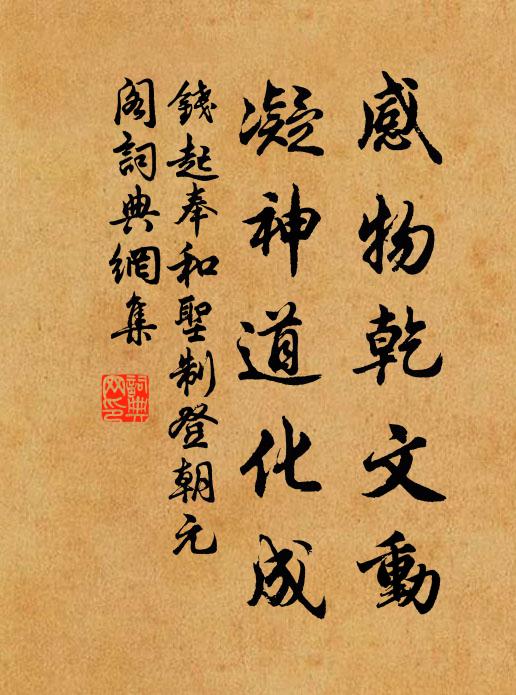 感物乾文動
凝神道化成
錢起奉和聖制登朝元
閣詞典網集
詞典網印